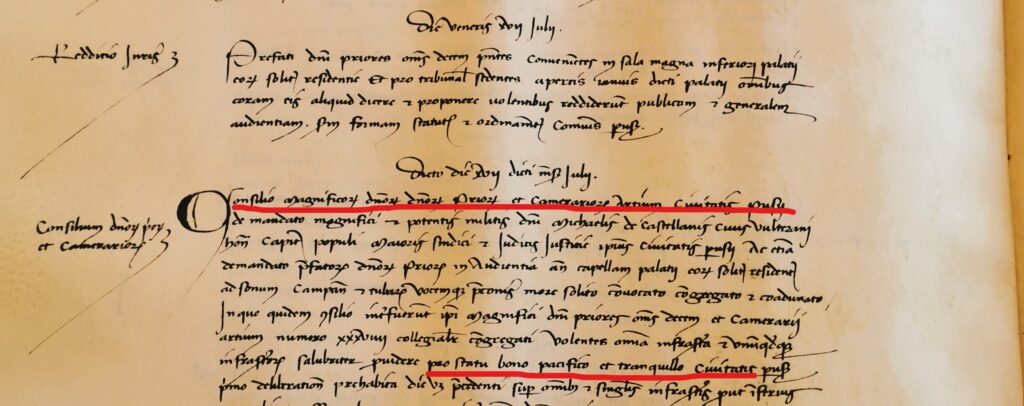 Die veneris xvii Julii.
Redditio Juris
Prefati dñi priores oms decem pñtes Convenientes in sala magna inferiori palatii
eoru solite residentie Et pro tribunali sedentes apertis ianuis dicti palatii omibus
coram eis aliquid dicere et proponere volentibus reddiderunt publicam et generalem
audientiam. Sm formam statutor et ordinament Comunis perus
Dicto die xvii dicti mens Julii.
Consilium dñor prior
et Camerarior
Consilio Magnificor dñor dñor Prior et Camerarior Artium Civitatis perusij
de mandato magnifici et potentis militis dñi Michaelis de Castellanis Civis Vulterrani
hon Capit populi Maioris sindici et Judicis Justitie ipius Civitatis perusii Ac etia
de mandato pfator dñor Prior in Audientia an capellam palatii eor solite residen
ad sonum Campan et tubar vocemque preconis more solito convocato congregato et coadunato
In quo quidem consilio interfuerunt ipi Magnifici dñi priores oms decem et Camerarii
artium numero xxxviii collegialr congregati Volentes omia infrasta et
infrastor salubriter providere pro statu bono pacifico et tranquillo Civitatis perus
pmo deliberation prehabita die precedenti sup omib et singlis infrastis put